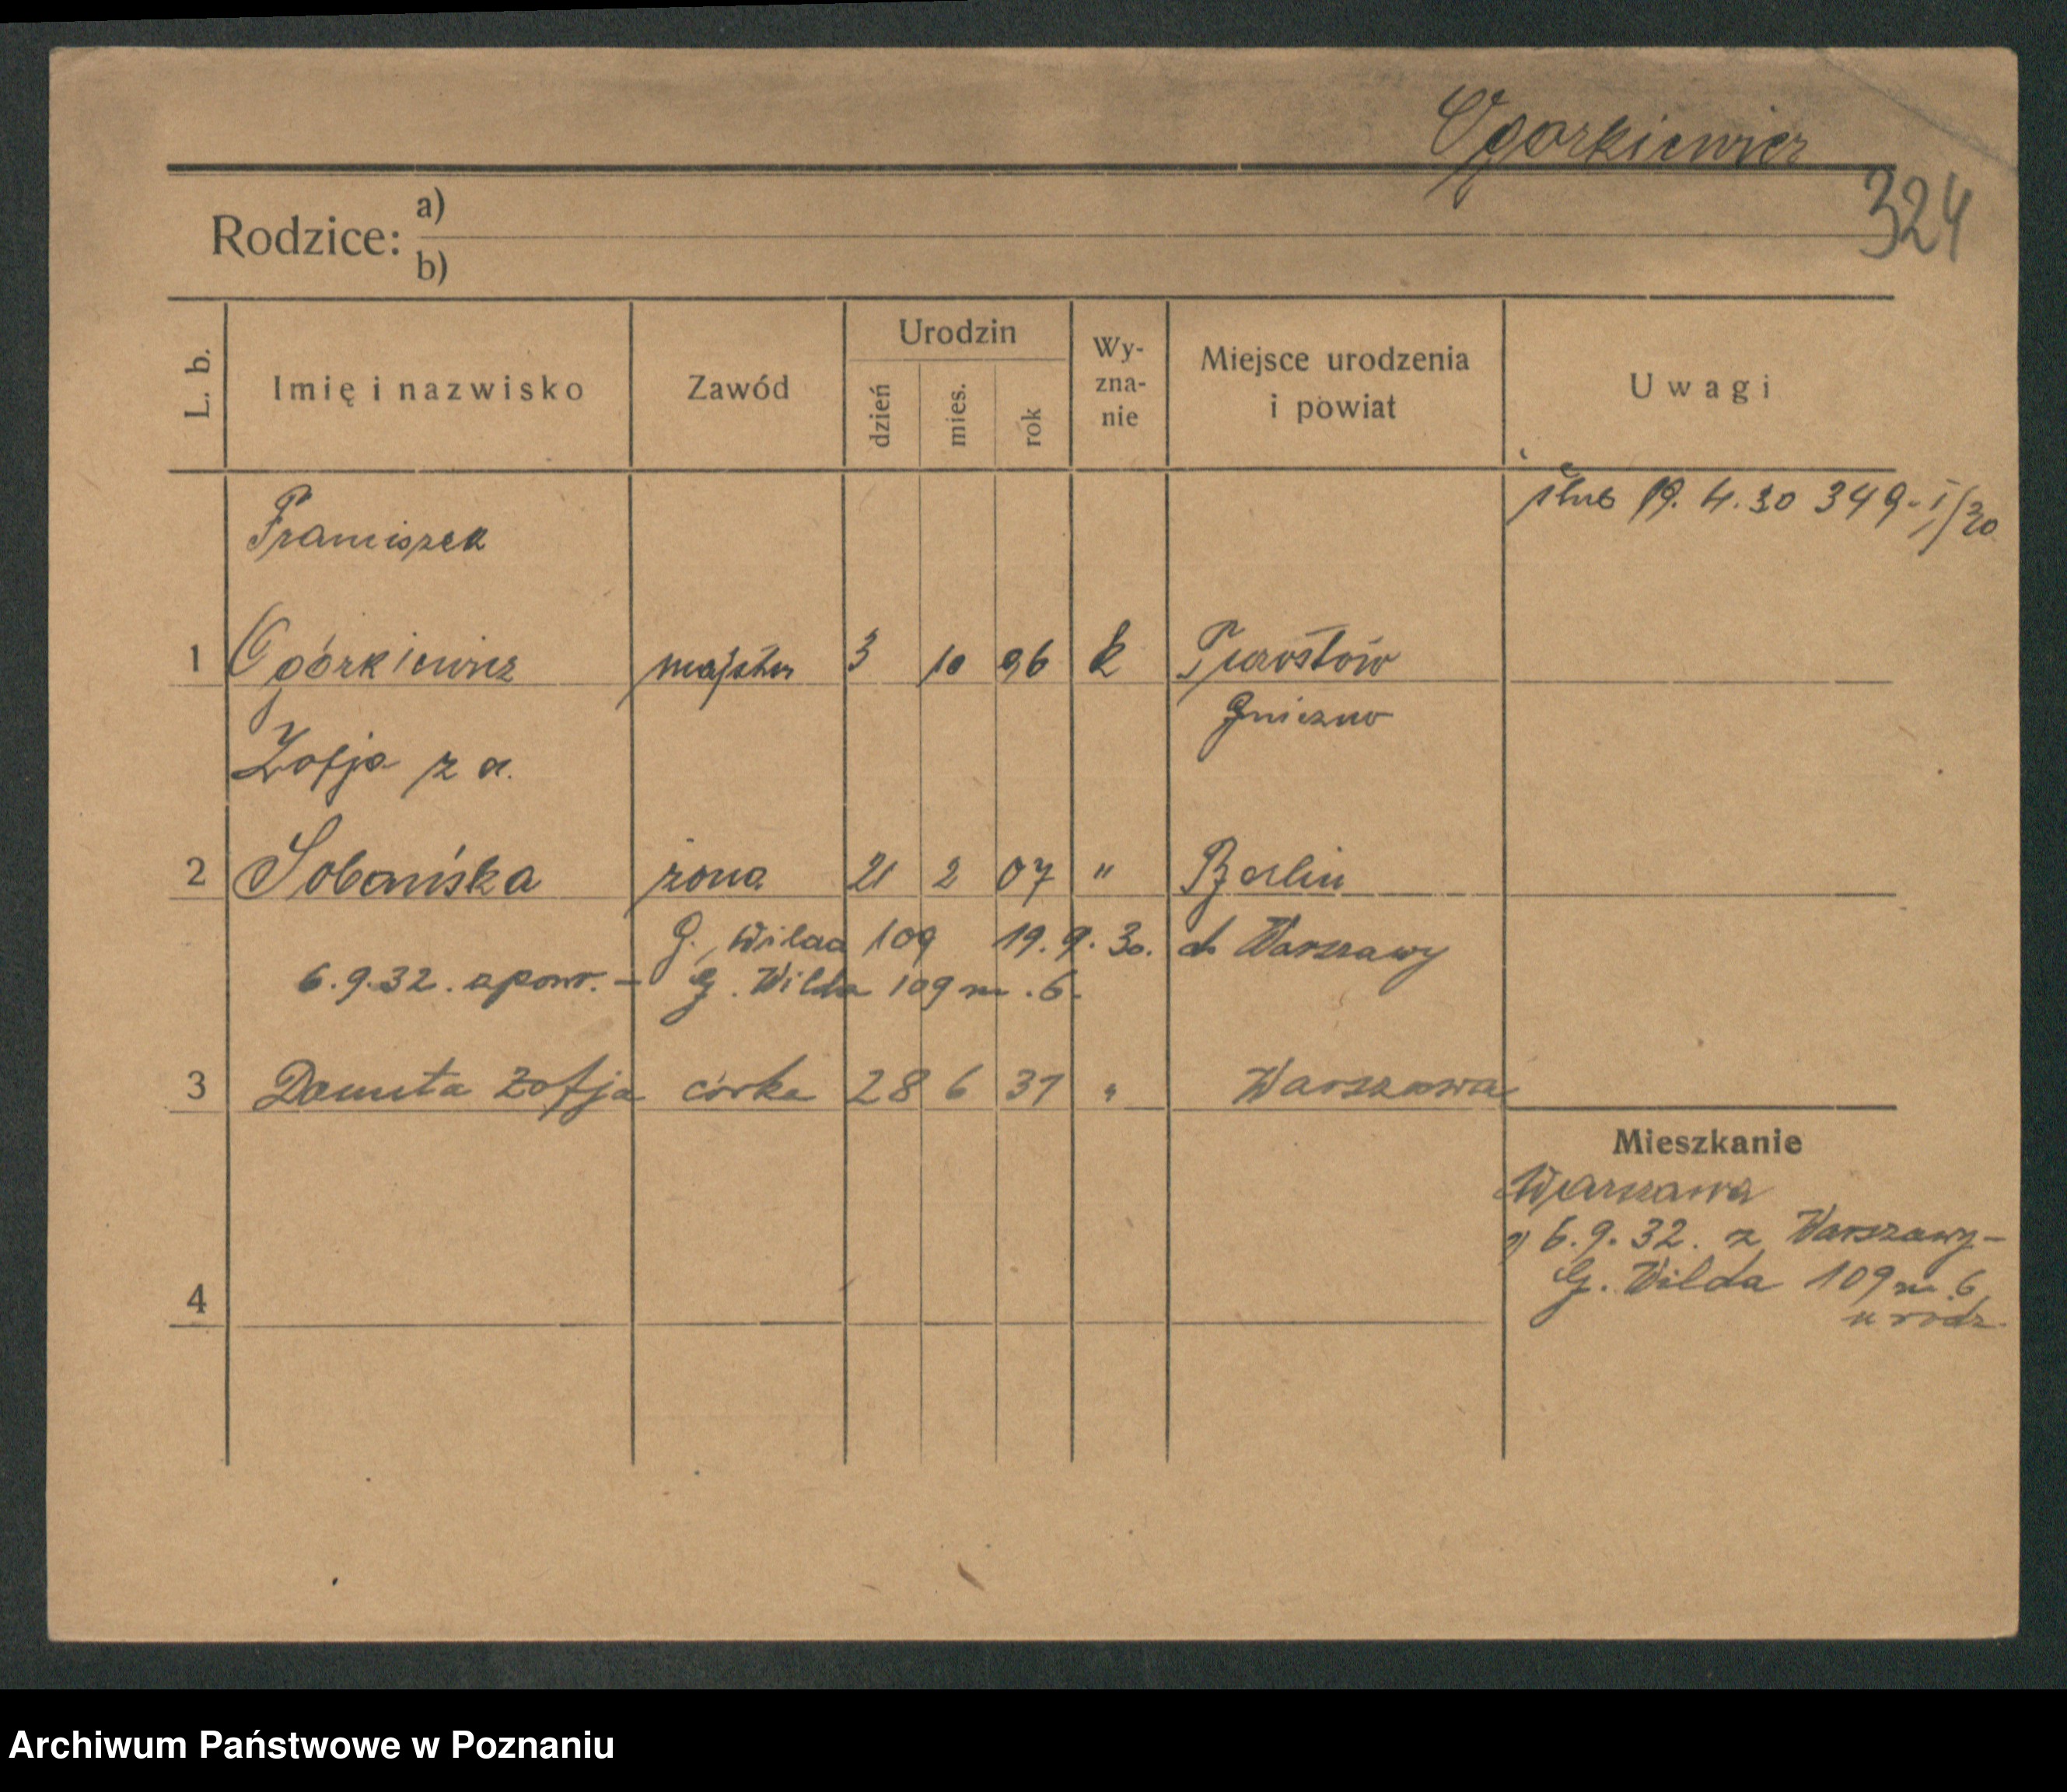 Ogorkiewicz
324
Rodzice: a)
b)
L. b. Imię i nazwisko Zawód Urodzin dzień mies. rok Wy-zna-nie Miejsce urodzenia i powiat Uwagi
ślub 19. 4. 30 349-I/30
Franciszek
1 Ogórkiewicz majster 3 10 96 k
Gniezno
Zofja z d.
2 Sobańska żona 21 2 07 " Berlin
G. Wilda 109 19. 9. 30. do Warszawy
6.9.32. zpowr. - G. Wilda 109 m. 6.
3 Danuta Zofja córka 28 6 31 " Warszawa
Mieszkanie
Warszawa
6.9.32. z Warszawy -
G. Wilda 109 m. 6
u rodz.
4
Archiwum Państwowe w Poznaniu